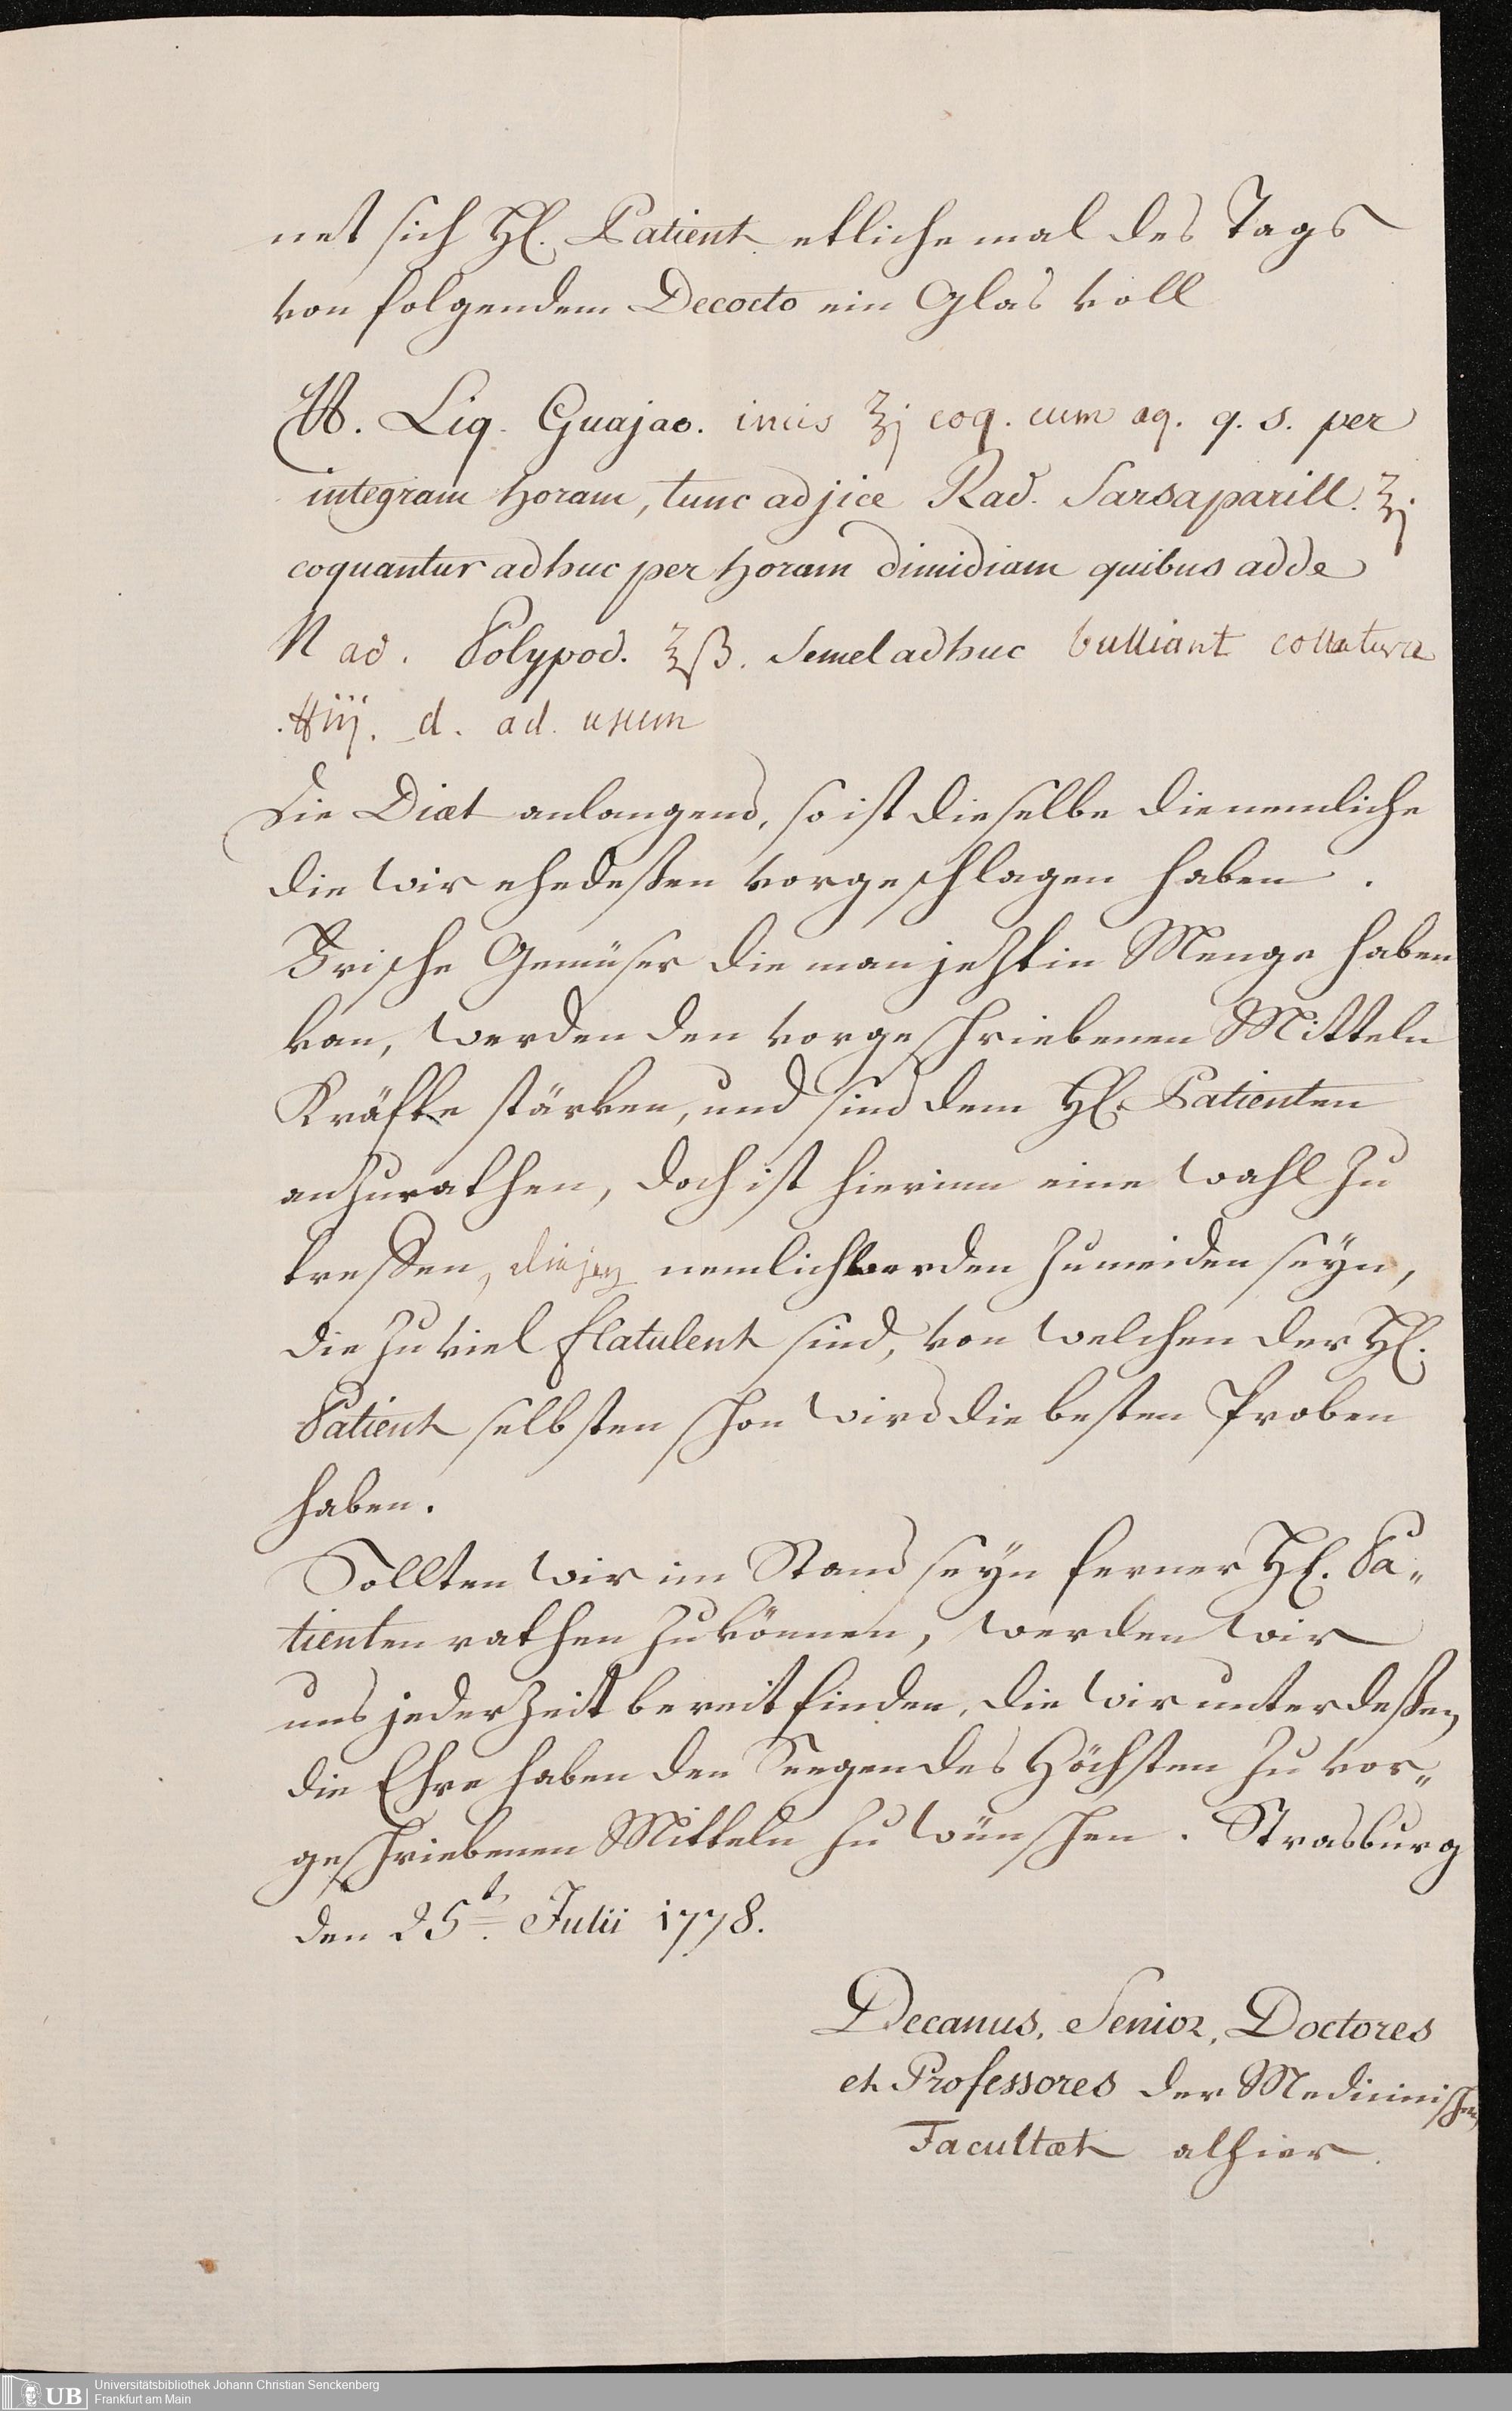 net sich H. Patient etliche mal des Tags
von folgendem Decocto ein Glas voll
℞. Lig. Guajac. incis ℥j coq. cum aq. q. s. per
integram horam, tunc adjice Rad. Sarsaparill. ℥j
coquantur adhuc per horam dimidiam quibus adde
Rad. Polypod. ℥ß. Semel adhuc bulliant collatura
℔iij. d. ad. usum
Die Diæt anlangend, so ist dieselbe die nemliche
die wir ehedeßen vorgeschlagen haben.
Frische Gemüser die man jetzt in Menge haben
kan, werden den vorgeschriebenen Mitteln
Kräfte stärken, und sind dem H. Patienten
anzurathen, doch ist hierinn eine Wahl zu
treffen, diejen nemlich werden zu meiden seyn,
die zu viel flatulent sind, von welchen der H.
Patient selbsten schon wird die besten Proben
haben.
Sollten wir im Stand seyn ferner H. Pa„
tienten rathen zu können, werden wir
uns jederzeit bereit finden, die wir unterdeßen
die Ehre haben den Seegen des Höchsten zu vor„
geschriebenen Mitteln zu wünschen. Strasburg
den 25t. Julii 1778.
Decanus, Senior, Doctores
et Professores der Medicinischen
Facultæt alhier.
UB Universitätsbibliothek Johann Christian Senckenberg
Frankfurt am Main